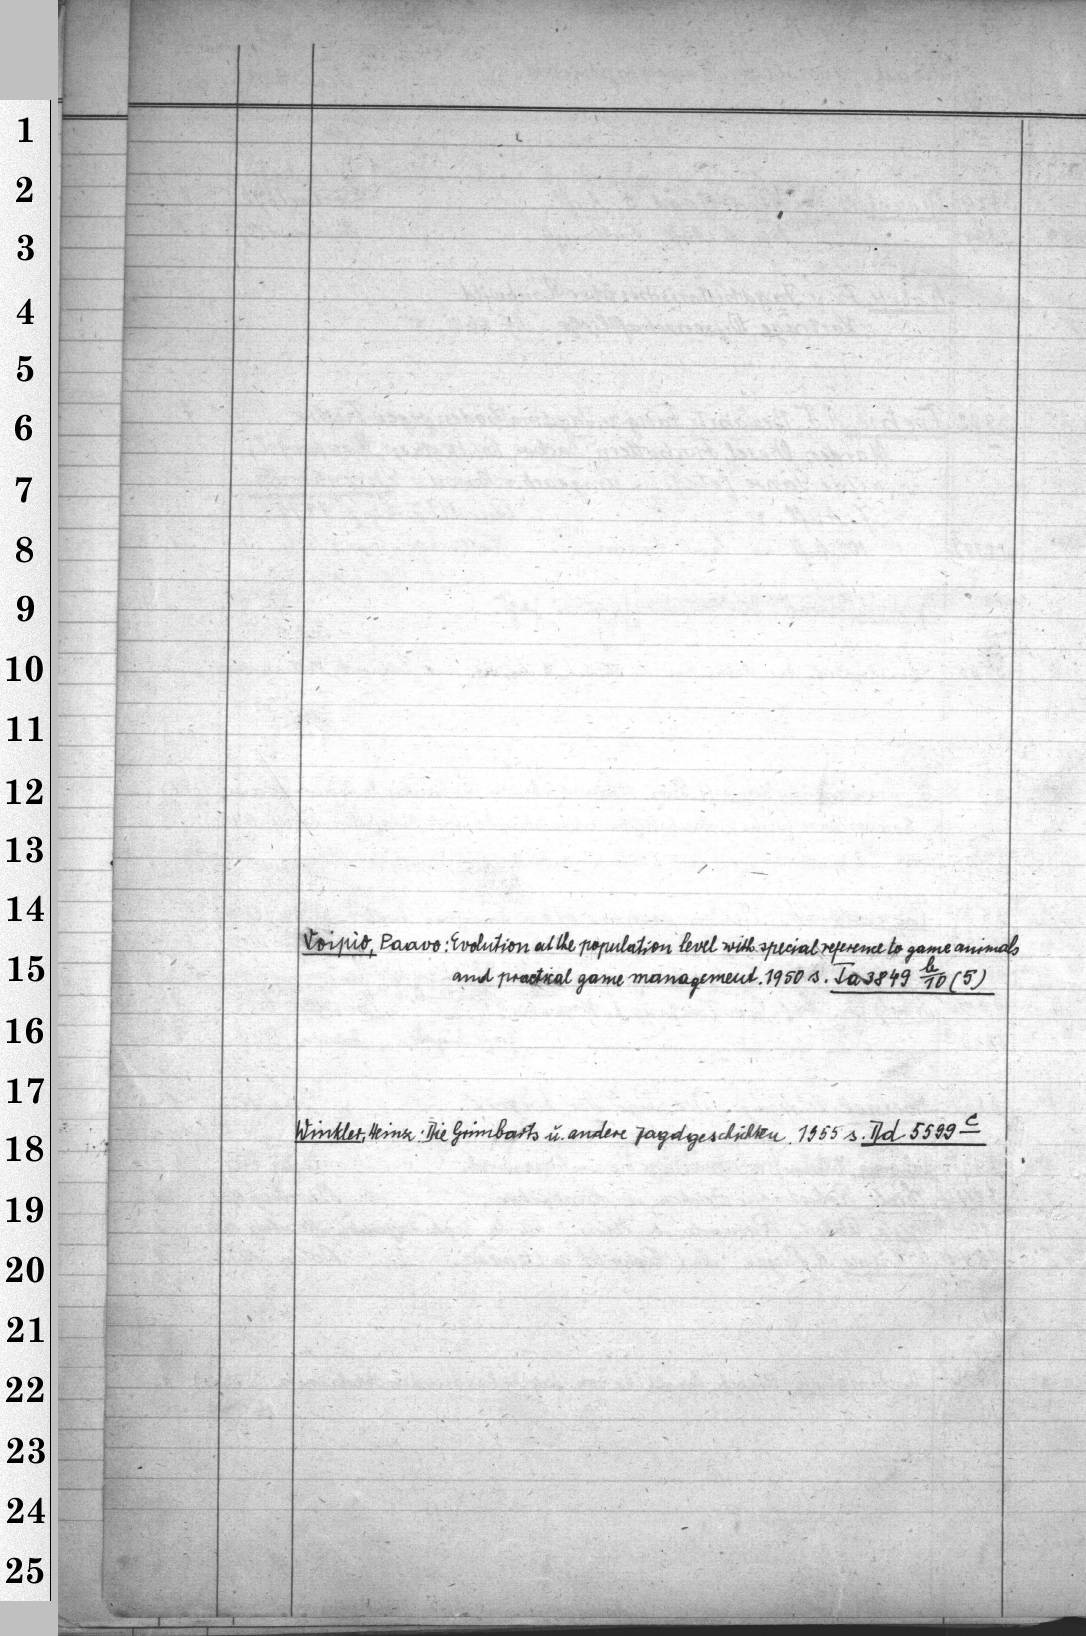 1
2
3
4
5
6
7
8
9
10
11
12
13
14
Voipio, Paavo: Evolution at the population level with special reference to game animals
15
and practical game management. 1950 s. Ia 3849 b/10 (5)
16
17
Winkler, Heinz: Die Grimbarts u. andere Jagdgeschichten. 1955 s. IId 5599 c
18
19
20
21
22
23
24
25